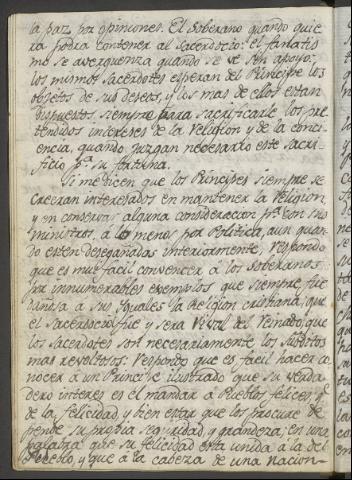 la paz por opiniones. El Soberano quando quie
ra podra contener al Sacerdocio: el fanatis
mo se averguenza quando se ve sin apoyo:
los mismos Sacerdotes esperan del Principe los
objetos de sus deseos, y los mas de ellos estan
dispuestos siempre para sacrificarle los pre
tendidos intereses de la Religion y de la conci
encia, quando juzgan necesario este sacri
ficio pa. su fortuna.
Si me dicen que los Principes siempre se
creeran interesados en mantener la Religion,
y en conservar alguna consideracion pa. con sus
ministros, a lo menos por Politica, aun quan
do esten desegañadas interiormente, Respondo
que es mui facil convencer a los Soberanos
por innumerables exemplos que siempre fue
dañosa a sus Iguales la Religion cristiana, que
el Sacerdocio fue y sera Rival del Reinado, que
los Sacerdotes son necesariamente los subditos
mas revoltosos. Respondo que es facil hacer co
nocer a un Principe ilustrado que su verda
dero interes es el mandar a Pueblos felices, qe.
de la felicidad y bien estar que los procure de
pende su propia seguridad, y grandeza, en una
palabra que su felicidad esta unida a la del
Pueblo, y que à la cabeza de una Nacion